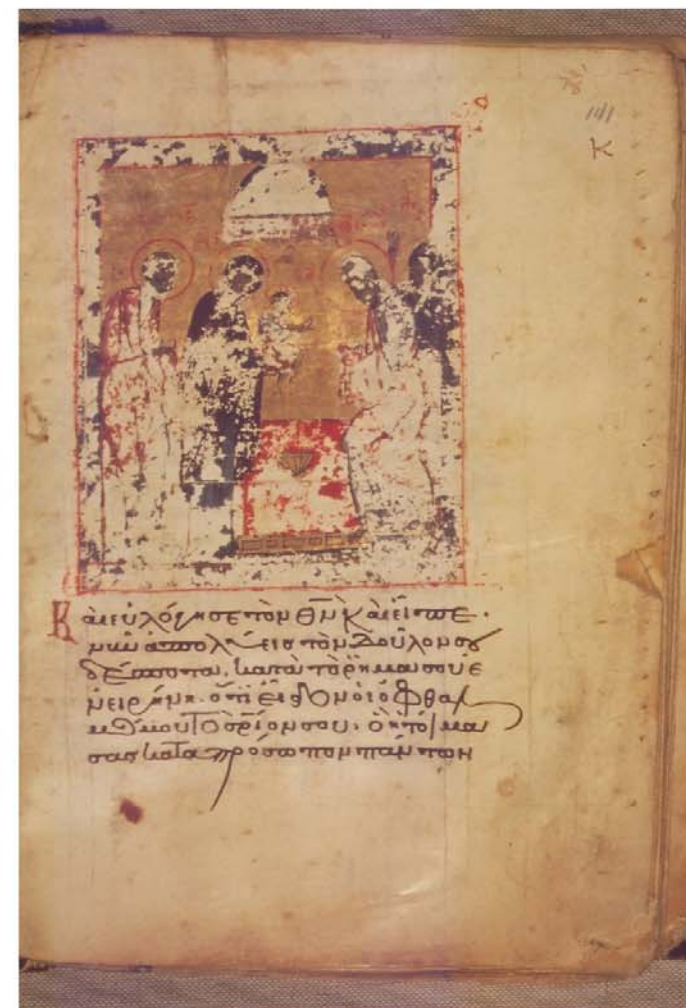 141
κ
Καὶ εὐλόγησε τὸν Θν̅ καὶ εἶπε·
νῦν ἀπολύεις τὸν δοῦλόν σου
δέσποτα, κατὰ τὸ ρῆμα σου ἐ
ν εἰρήνη· ὅτι εἶδον οἱ ὀφθαλ
μοί μου τὸ σριον σου· ὃ ητοίμα
σας κατα πρόσωπον πάντων